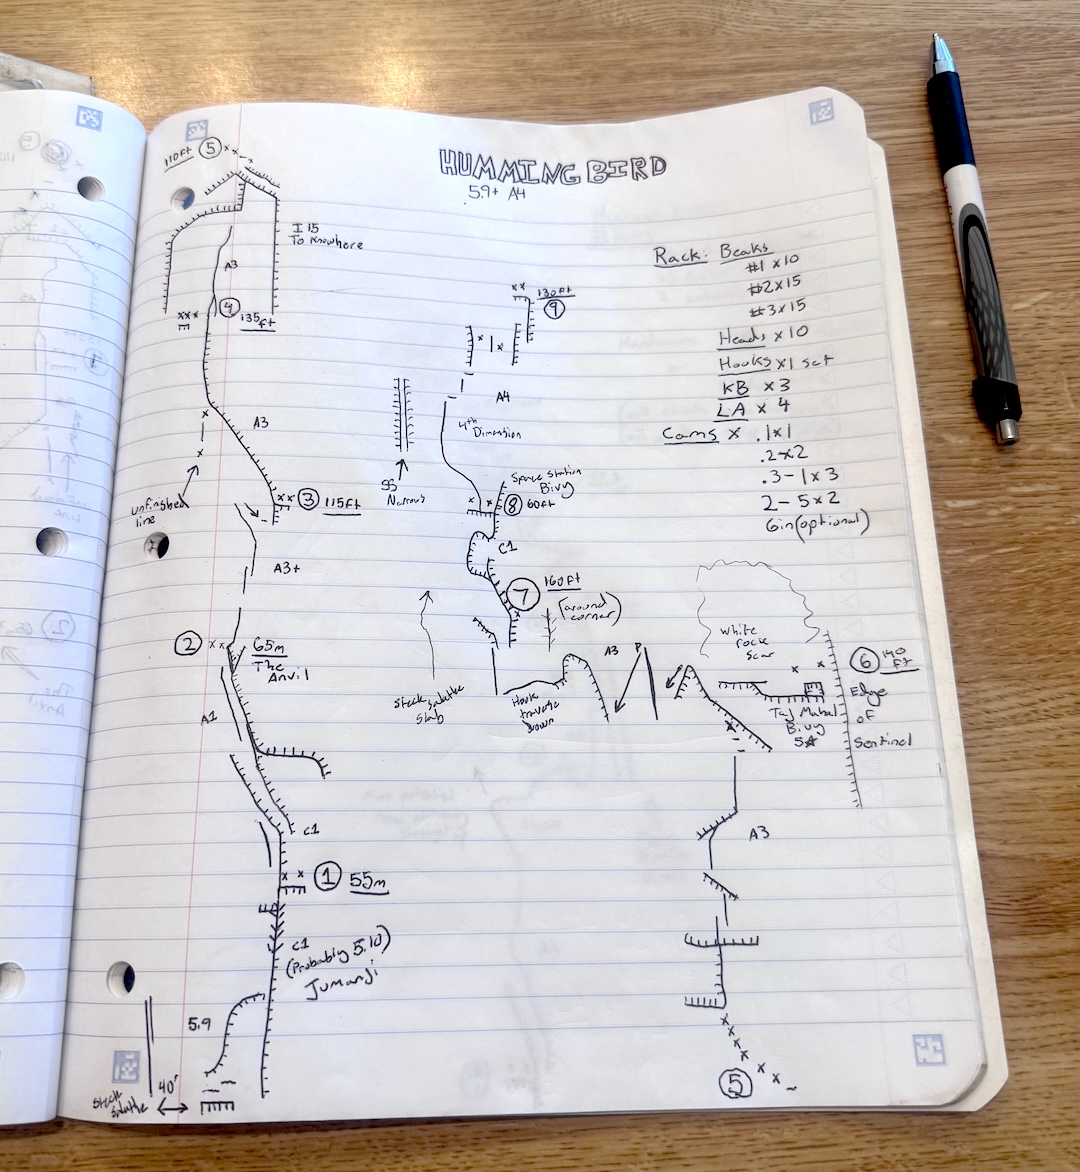 HUMMINGBIRD
5.9+ A4
110ft 5
I 15
To Knowhere
A3
4
135ft
A3
unfinished
line
3 115ft
A3+
2
65m
The
Anvil
A1
C1
1 55m
C1
(Probably 5.10)
Jumanji
5.9
40'
Steck
Salathe
130ft
9
A4
4th
Dimension
Narrows
Space Station
Bivy
8 60ft
C1
7
160ft
(around
corner)
Steck Salathe
Slab
Hook
traverse
Down
A3
P
White
rock
Scar
6 140
ft
Edge
of
Sentinel
Taj Mahal
Bivy
5☆
A3
5
Rack: Beaks
#1 x10
#2 x15
#3 x15
Heads x 10
Hooks x 1 set
KB x 3
LA x 4
Cams x .1x1
.2x2
.3-1x3
2-5x2
6in (optional)